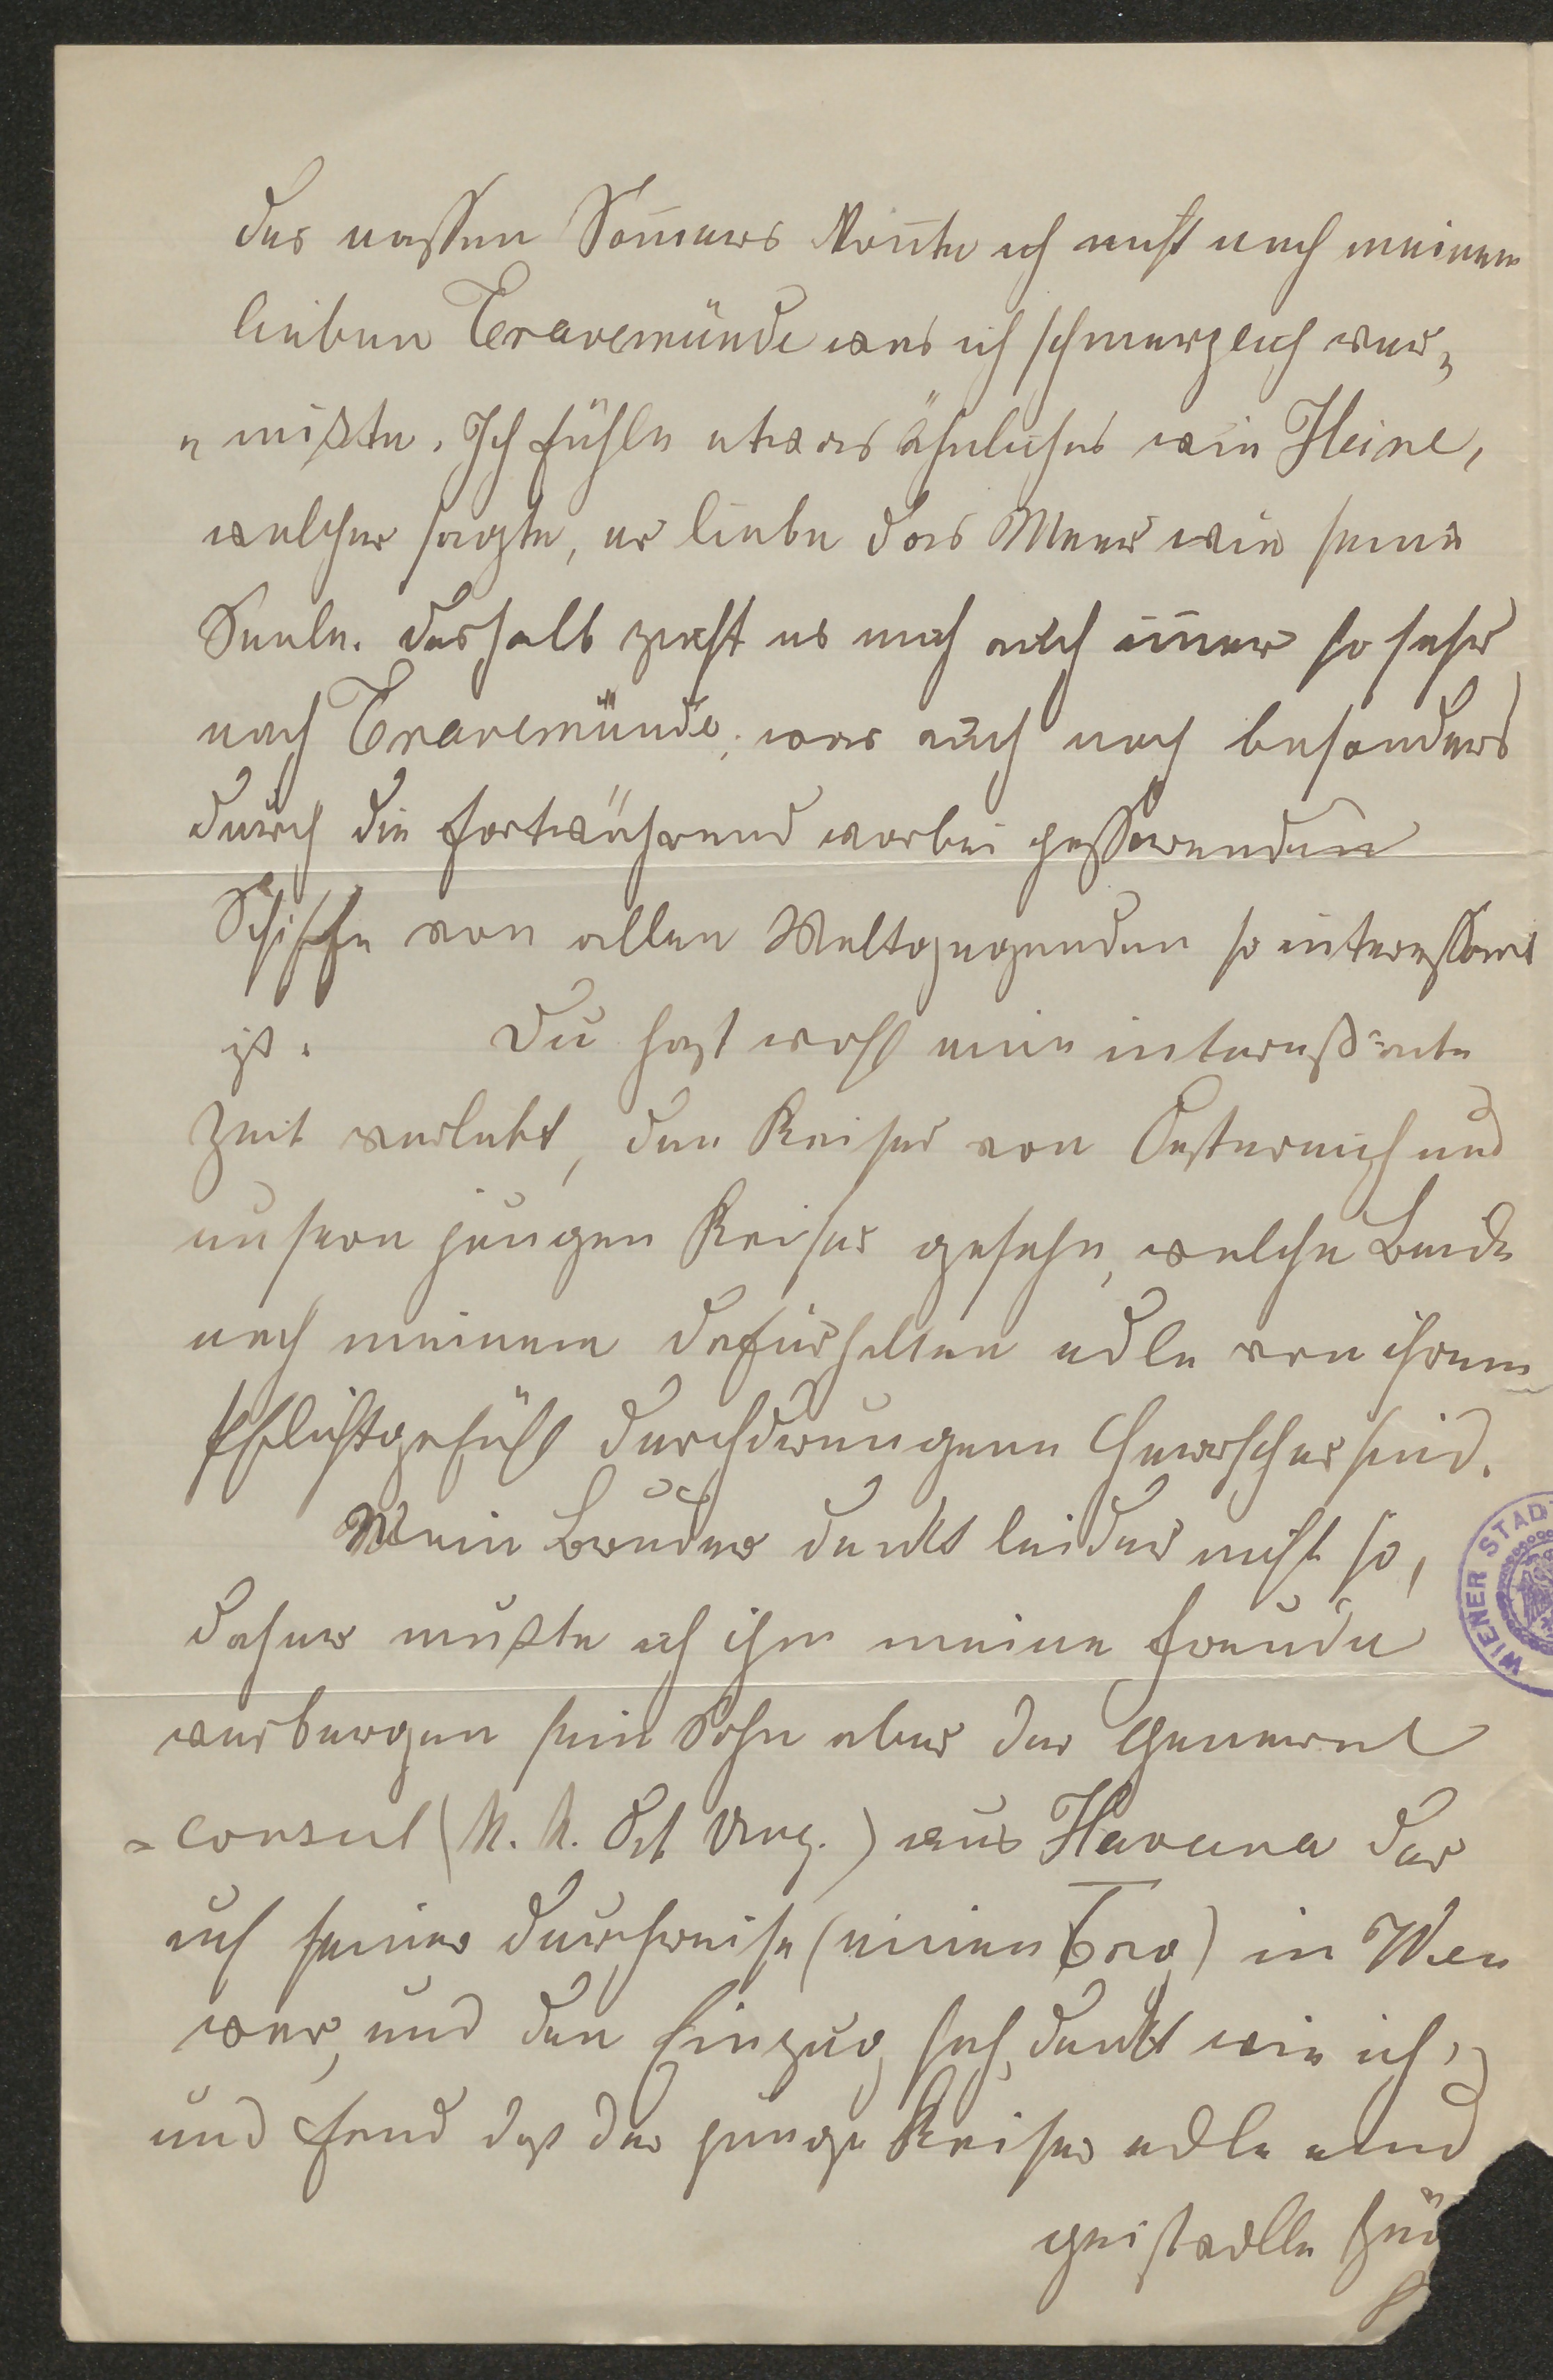 des nassen Som̄ers kon̄te ich nicht nach meinem
lieben Travemünde was ich schmerzlich ver=
=mißte. Ich fühle etwas ähnliches wie Heine,
welcher sagte, er liebe das Meer wie seine
Seele. deshalb zieht es mich auch im̄er so sehr
nach Travemünde, was auch noch besonders
durch die fortwährend vorbei
Schiffe von allen Weltgegenden so interessant
ist. Du hast wohl eine interessante
Zeit verlebt, den Kaiser von Oesterreich und
unsern jungen Kaiser gesehn, welche Beide
nach meinem dafürhalten edle von ihrem
Pflichtgefühl durchdrungene Herrscher sind.
Mein Bruder denkt leider nicht so,
daher mußte ich ihm meine Freude
verbergen sein Sohn aber der General
=consul (k. k. Öst Ung.) aus Havana der
auf seiner Durchreise (einen Tag) in Wien
war, und den Einzug sah, denkt wie ich,
und fand daß der junge Kaiser edle und
geistvolle Zü
WIENER STADT